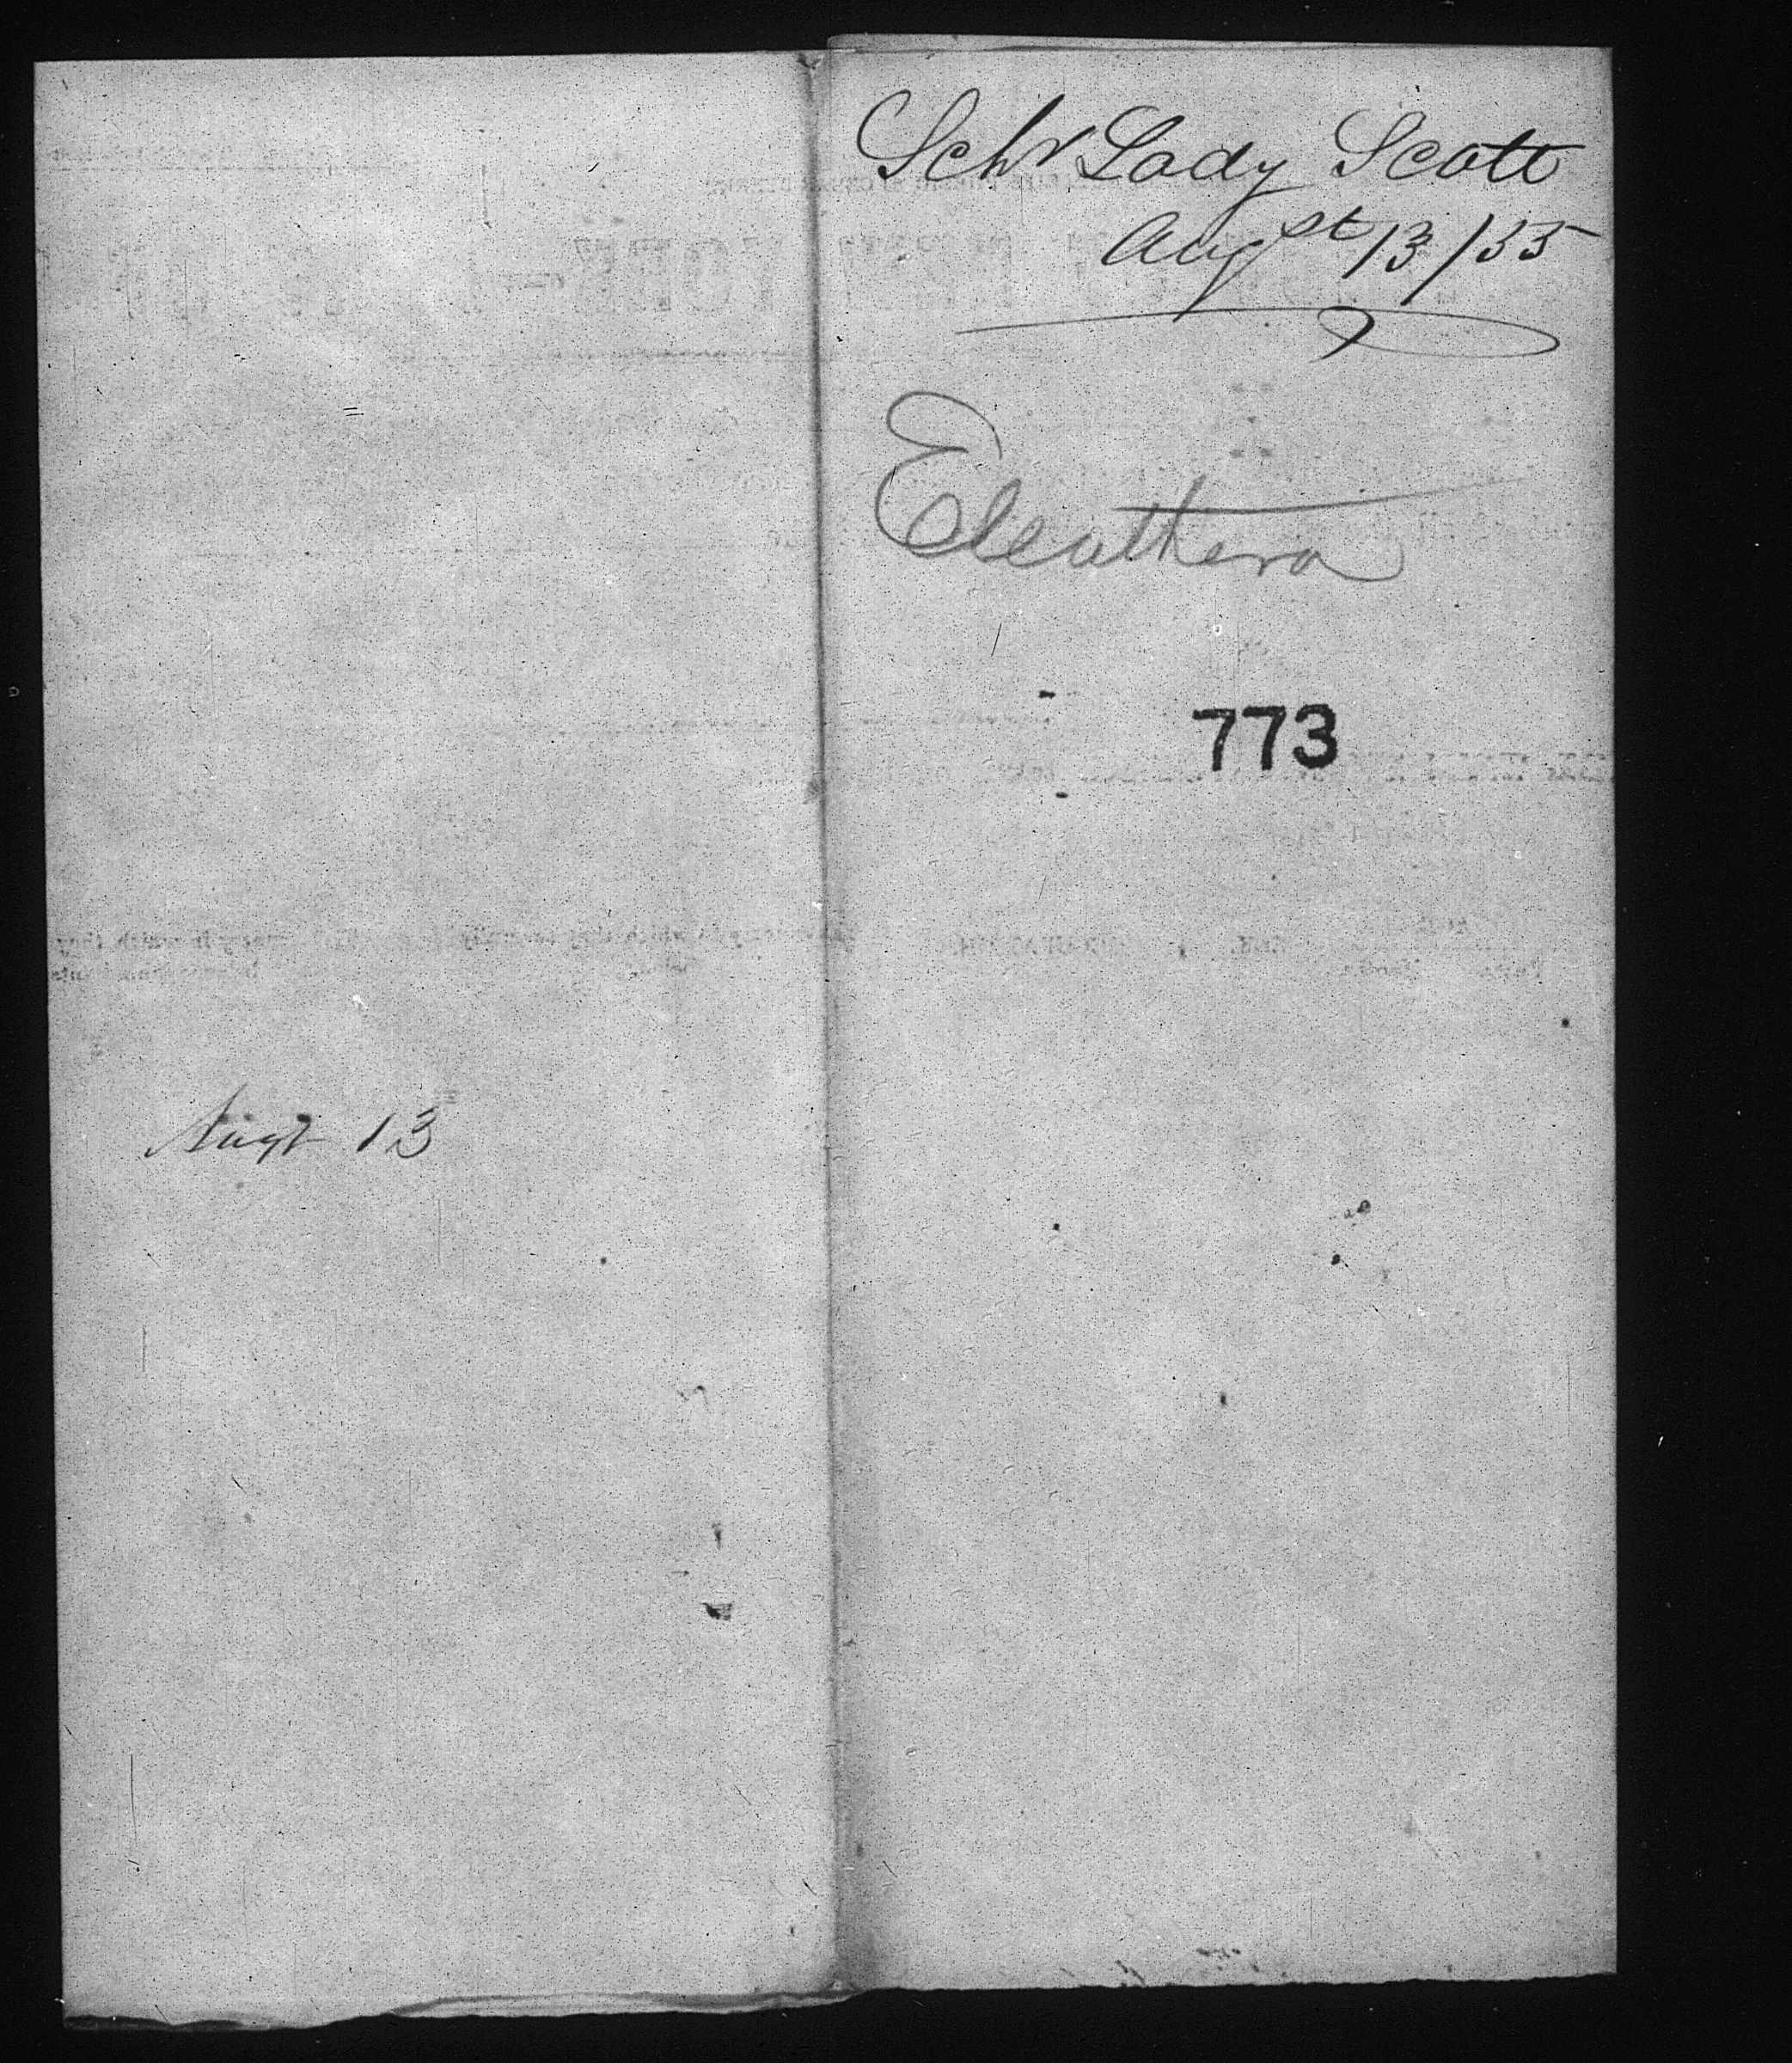 Schr Lady Scott
Augst 13/55
Eleuthera
773
Augt 13